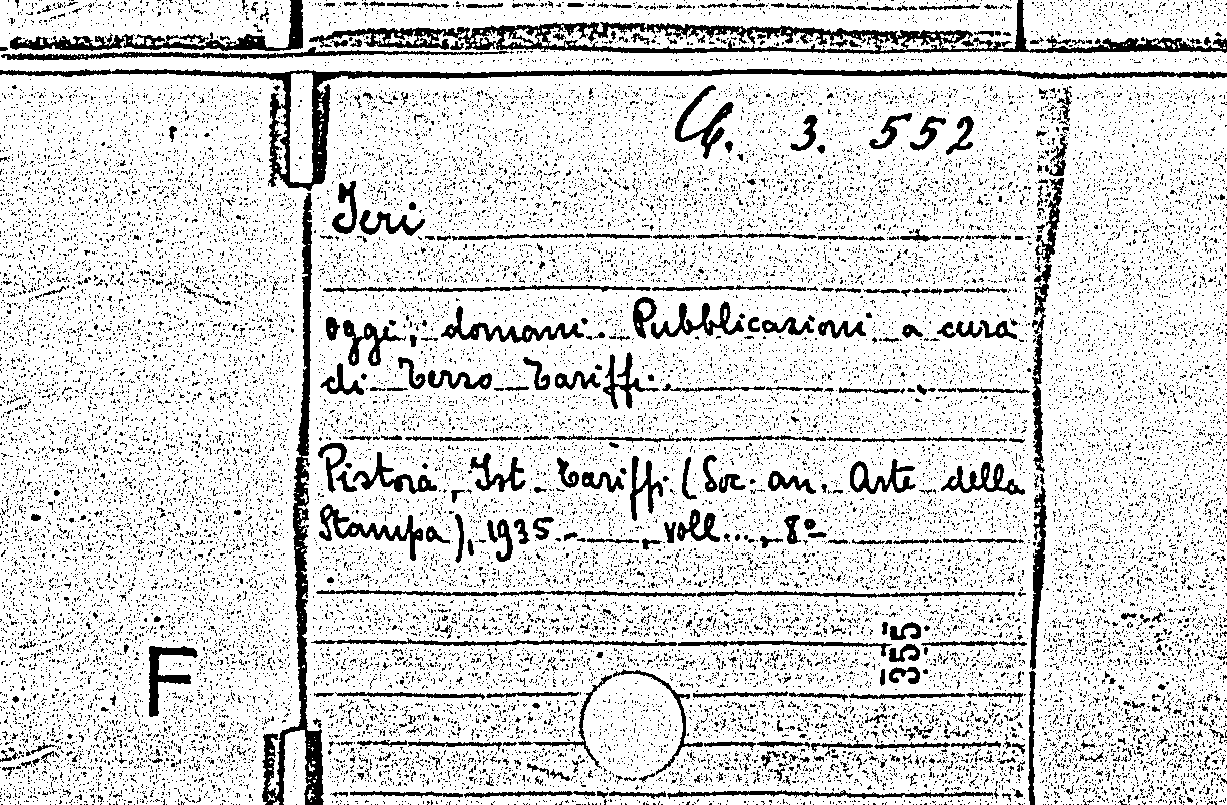 3. 552
Ieri
oggi, domani. Pubblicazioni a cura
di Terzo Tariffi.
Pistoia, Ist. Tariffi (Soc. an. Arte della
Stampa), 1935 - , voll..., 8º
355
F